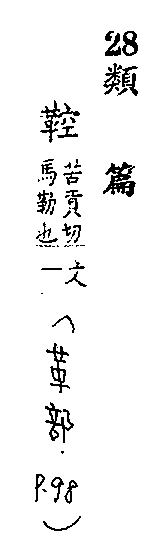 28類篇
鞚苦貢切馬勒也一文(革部.P.98)